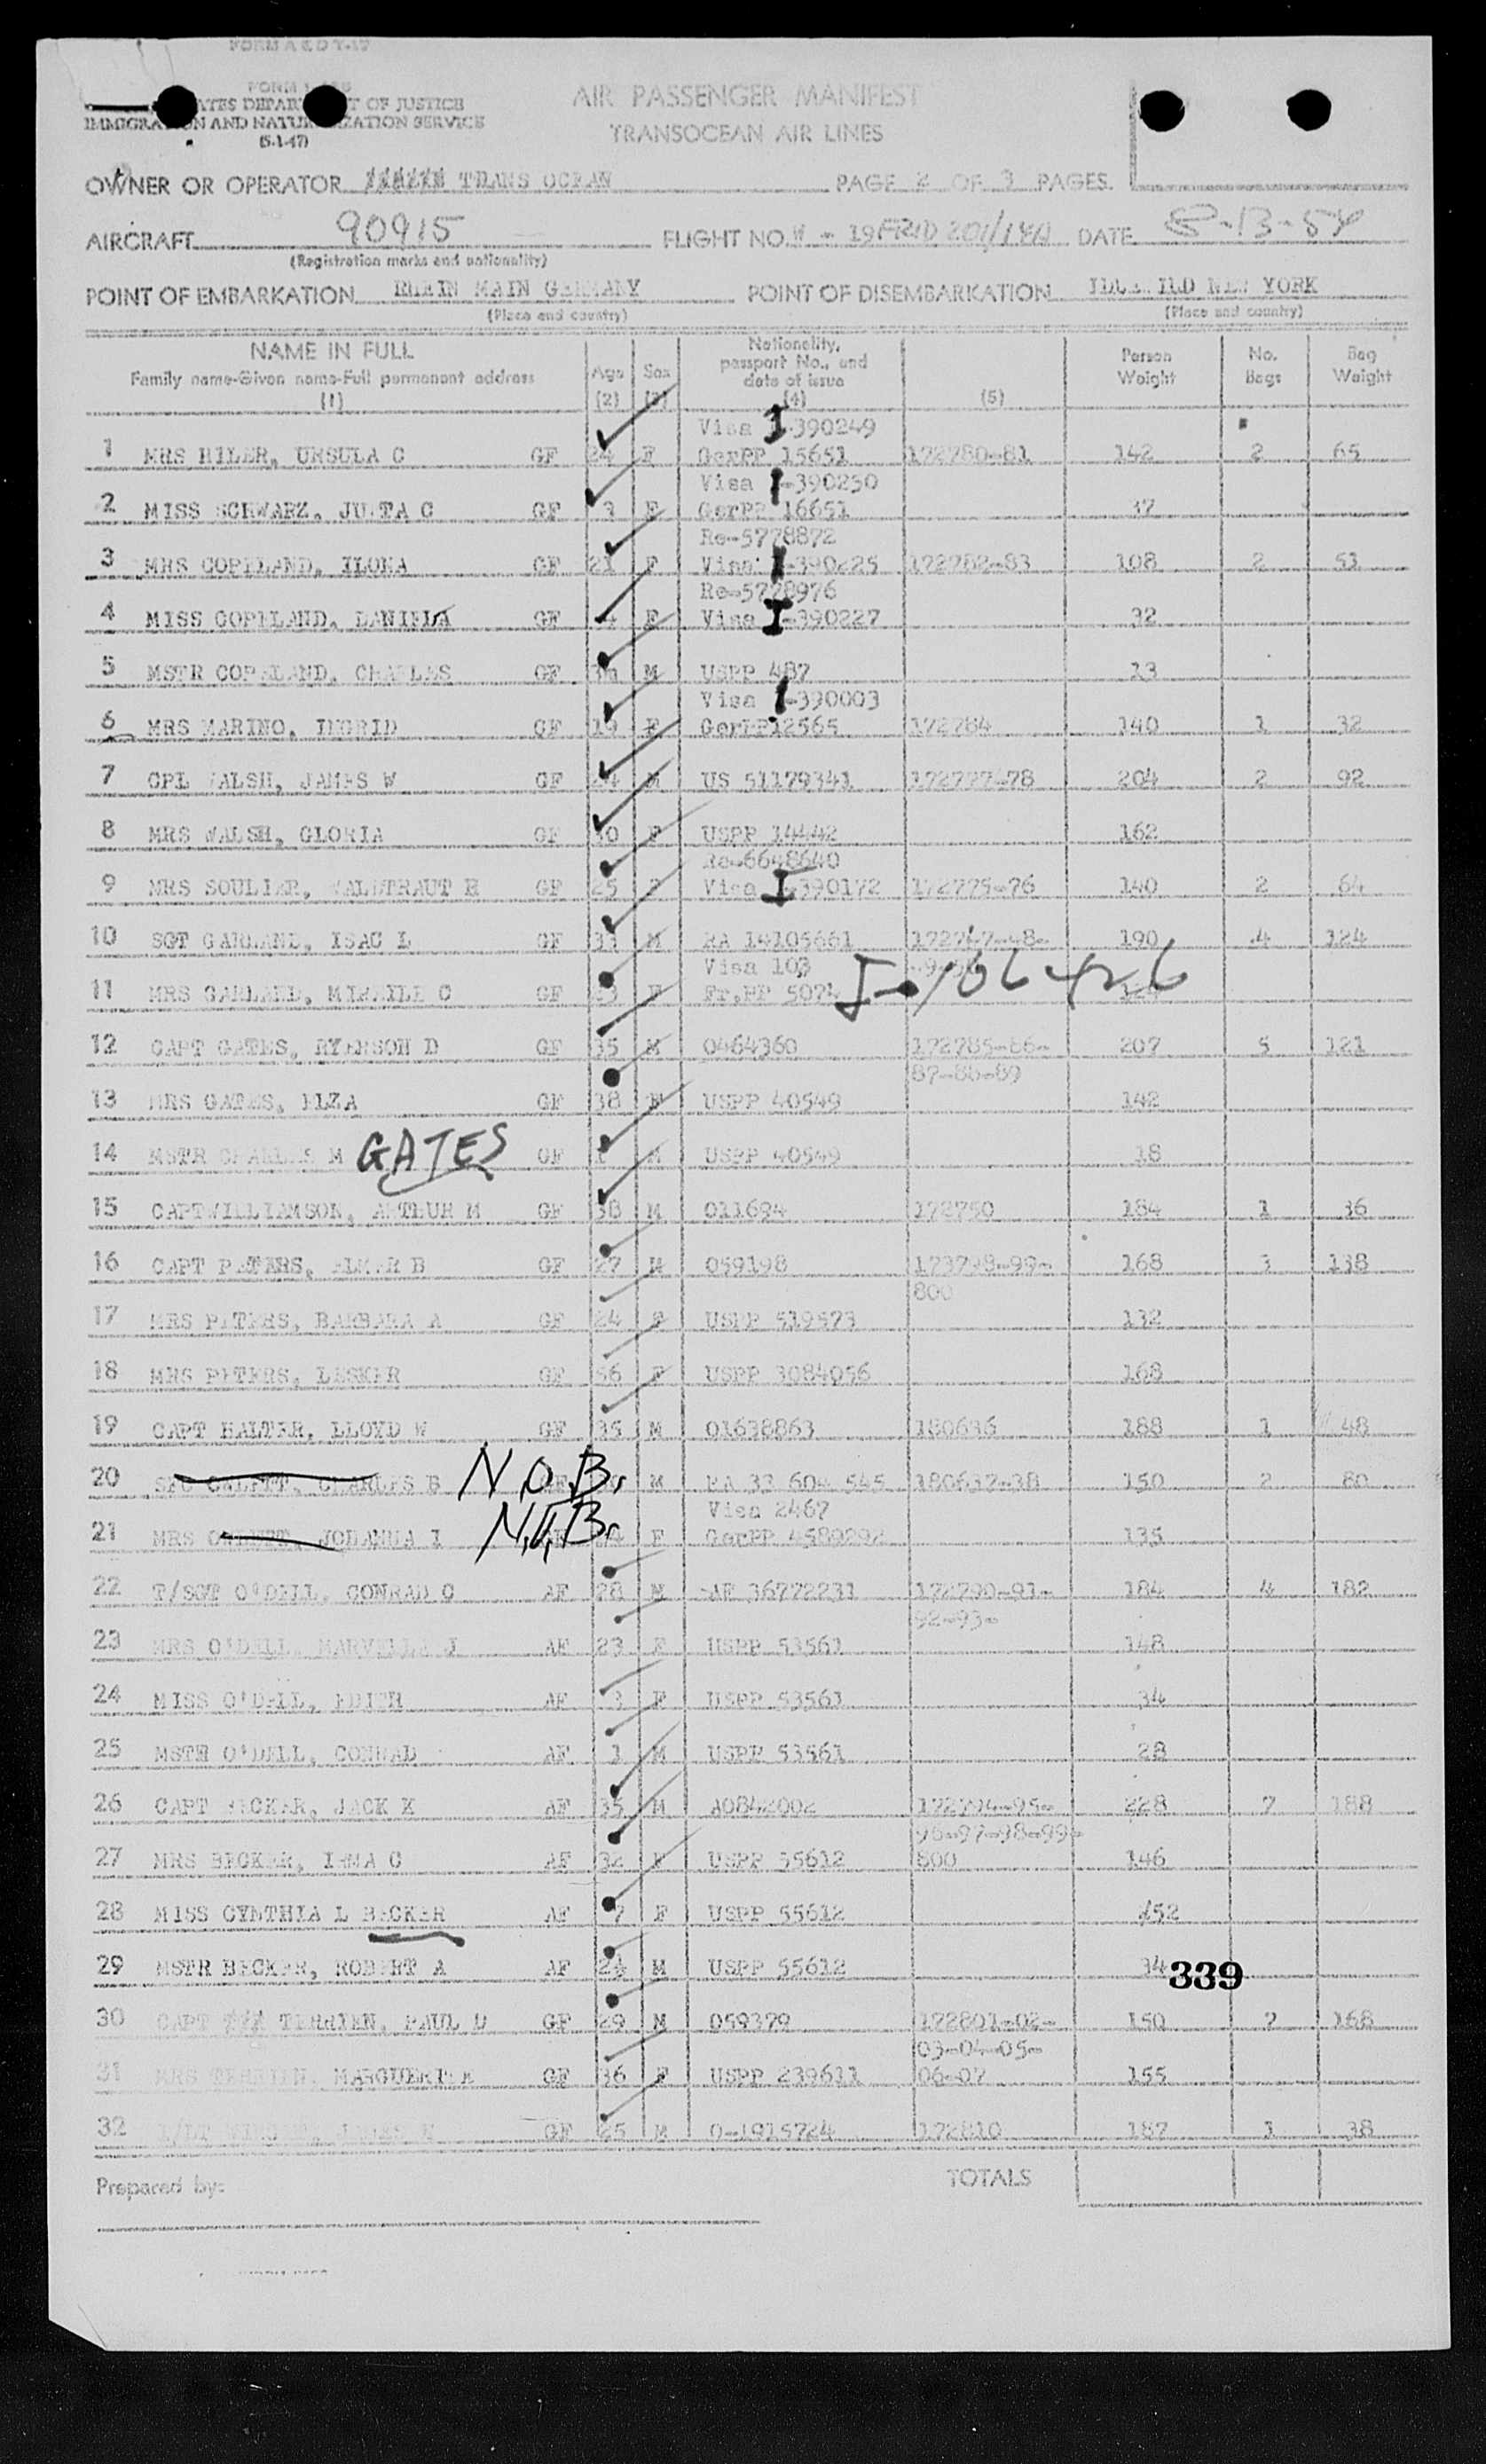 FORM A & D T-17
FORM I-
STATES DEPARTMENT OF JUSTICE
IMMIGRATION AND NATURALIZATION SERVICE
(5-1-47)
AIR PASSENGER MANIFEST
TRANSOCEAN AIR LINES
OWNER OR OPERATOR TRANS OCEAN PAGE 2 OF 3 PAGES
AIRCRAFT 90915 FLIGHT NO. W - 19 DATE 8-13-54
(Registration marks and nationality)
POINT OF EMBARKATION RHEIN MAIN GERMANY POINT OF DISEMBARKATION IDLEWILD NEW YORK
(Place and country) (Place and country)
NAME IN FULL
Family name-Given name-Full permanent address
(1)
Age
(2)
Sex
(3)
Nationality,
passport No., and
date of issue
(4)
(5)
Person
Weight
No.
Bags
Bag
Weight
Visa I-390249
1 MRS HILER, URSULA C GF 24 F GerPP 15651 172780-81 142 2 65
Visa I-390250
2 MISS SCHWARZ, JUTTA C GF 3 F GerPP 16651 37
Re-5778872
3 MRS COPELAND, ILONA GF 21 F Visa I-390225 172782-83 108 2 51
Re-5778976
4 MISS COPELAND, DANIELA GF F Visa I-390227 32
5 MSTR COPELAND, CHARLES GF M USPP 487 13
Visa I-390003
6 MRS MARINO, INGRID GF 19 F GerPP12565 172784 140 1 32
7 CPL WALSH, JAMES W GF 24 M US 51179341 172777-78 204 2 92
8 MRS WALSH, GLORIA GF F USPP 14442 162
Re-6648640
9 MRS SOULIER, WALDTRAUT R GF 25 F Visa I-390172 172775-76 140 2 64
10 SGT GARLAND, ISAC L GF 33 M RA 14105661 172747-48- 190 4 124
Visa 103 I-106426
11 MRS GARLAND, MIREILLE C GF 23 F Fr.PP 5074
12 CAPT GATES, RYERSON D GF 35 M 0464360 172785-86- 207 5 121
87-88-89
13 MRS GATES, ELZA GF 38 F USPP 40549 142
14 MSTR CHARLES M GATES GF 1 M USPP 40549 18
15 CAPT WILLIAMSON, ARTHUR M GF 38 M 011694 172750 184 1 36
16 CAPT PETERS, ELMER B GF 27 M 059198 173798-99- 168 3 138
800
17 MRS PETERS, BARBARA A GF 24 F USPP 519573 132
18 MRS PETERS, LESKER GF 56 F USPP 3084056 168
19 CAPT HALTER, LLOYD W GF 35 M 01638863 180636 188 1 48
20 SFC CHARLES B N.O.B. GF M RA 33 604 545 180637-38 150 2 80
Visa 2467
21 MRS JOHANNA I N.O.B. F GerPP 4589292 135
22 T/SGT O'DELL, CONRAD C AF 28 M AF 36772231 172790-91- 184 4 182
92-93-
23 MRS O'DELL, MARVELLE J AF 23 F USPP 53561 148
24 MISS O'DELL, EDITH AF 3 F USPP 53561 34
25 MSTR O'DELL, CONRAD AF 1 M USPP 53561 28
26 CAPT BECKER, JACK K AF 35 M A0842002 172794-95- 228 7 188
96-97-98-99-
27 MRS BECKER, IRMA C AF 32 F USPP 55612 800 146
28 MISS CYNTHIA L BECKER AF 7 F USPP 55612 52
29 MSTR BECKER, ROBERT A AF 2½ M USPP 55612 34
339
30 CAPT TERRIEN, PAUL D GF 29 M 059379 172801-02- 150 7 168
03-04-05-
31 MRS TERRIEN, MARGUERITE GF 36 F USPP 239611 06-07 155
32 1/LT JAMES GF 25 M O-1915724 172810 187 1 38
Prepared by: TOTALS